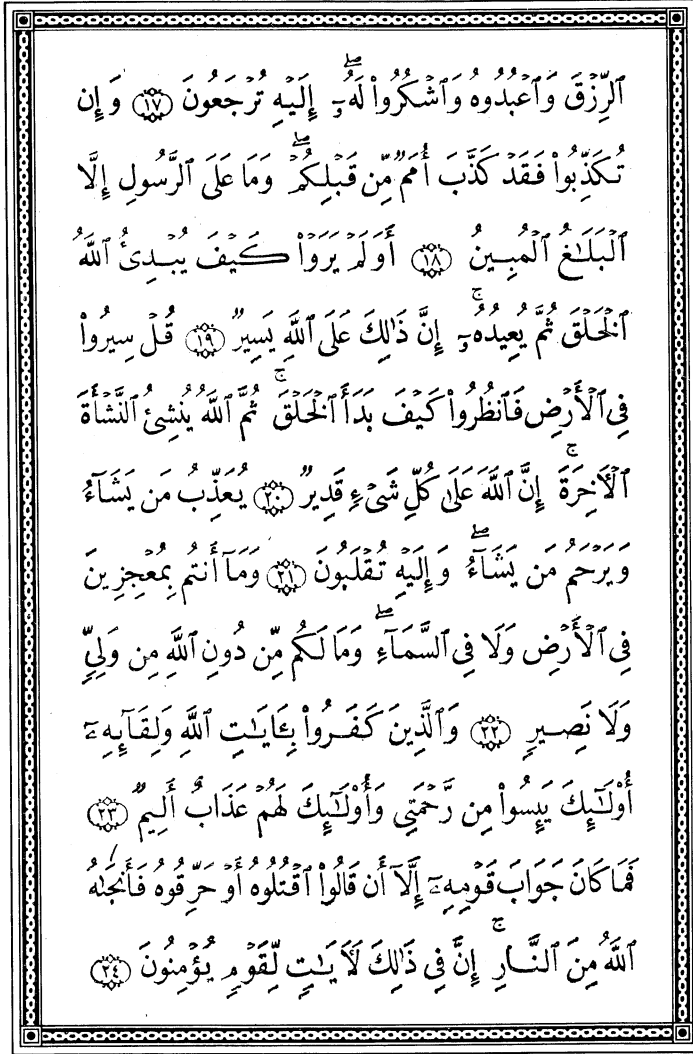 ٱلرِّزْقَ وَٱعْبُدُوهُ وَٱشْكُرُوا۟ لَهُۥٓ ۖ إِلَيْهِ تُرْجَعُونَ ﴿١٧﴾ وَإِن
تُكَذِّبُوا۟ فَقَدْ كَذَّبَ أُمَمٌ مِّن قَبْلِكُمْ ۖ وَمَا عَلَى ٱلرَّسُولِ إِلَّا
ٱلْبَلَٰغُ ٱلْمُبِينُ ﴿١٨﴾ أَوَلَمْ يَرَوْا۟ كَيْفَ يُبْدِئُ ٱللَّهُ
ٱلْخَلْقَ ثُمَّ يُعِيدُهُۥٓ ۚ إِنَّ ذَٰلِكَ عَلَى ٱللَّهِ يَسِيرٌ ﴿١٩﴾ قُلْ سِيرُوا۟
فِى ٱلْأَرْضِ فَٱنظُرُوا۟ كَيْفَ بَدَأَ ٱلْخَلْقَ ۚ ثُمَّ ٱللَّهُ يُنشِئُ ٱلنَّشْأَةَ
ٱلْـَٔاخِرَةَ ۚ إِنَّ ٱللَّهَ عَلَىٰ كُلِّ شَىْءٍ قَدِيرٌ ﴿٢٠﴾ يُعَذِّبُ مَن يَشَآءُ
وَيَرْحَمُ مَن يَشَآءُ ۖ وَإِلَيْهِ تُقْلَبُونَ ﴿٢١﴾ وَمَآ أَنتُم بِمُعْجِزِينَ
فِى ٱلْأَرْضِ وَلَا فِى ٱلسَّمَآءِ ۖ وَمَا لَكُم مِّن دُونِ ٱللَّهِ مِن وَلِىٍّ
وَلَا نَصِيرٍ ﴿٢٢﴾ وَٱلَّذِينَ كَفَرُوا۟ بِـَٔايَٰتِ ٱللَّهِ وَلِقَآئِهِۦٓ
أُو۟لَٰٓئِكَ يَئِسُوا۟ مِن رَّحْمَتِى وَأُو۟لَٰٓئِكَ لَهُمْ عَذَابٌ أَلِيمٌ ﴿٢٣﴾
فَمَا كَانَ جَوَابَ قَوْمِهِۦٓ إِلَّآ أَن قَالُوا۟ ٱقْتُلُوهُ أَوْ حَرِّقُوهُ فَأَنجَىٰهُ
ٱللَّهُ مِنَ ٱلنَّارِ ۚ إِنَّ فِى ذَٰلِكَ لَـَٔايَٰتٍ لِّقَوْمٍ يُؤْمِنُونَ ﴿٢٤﴾